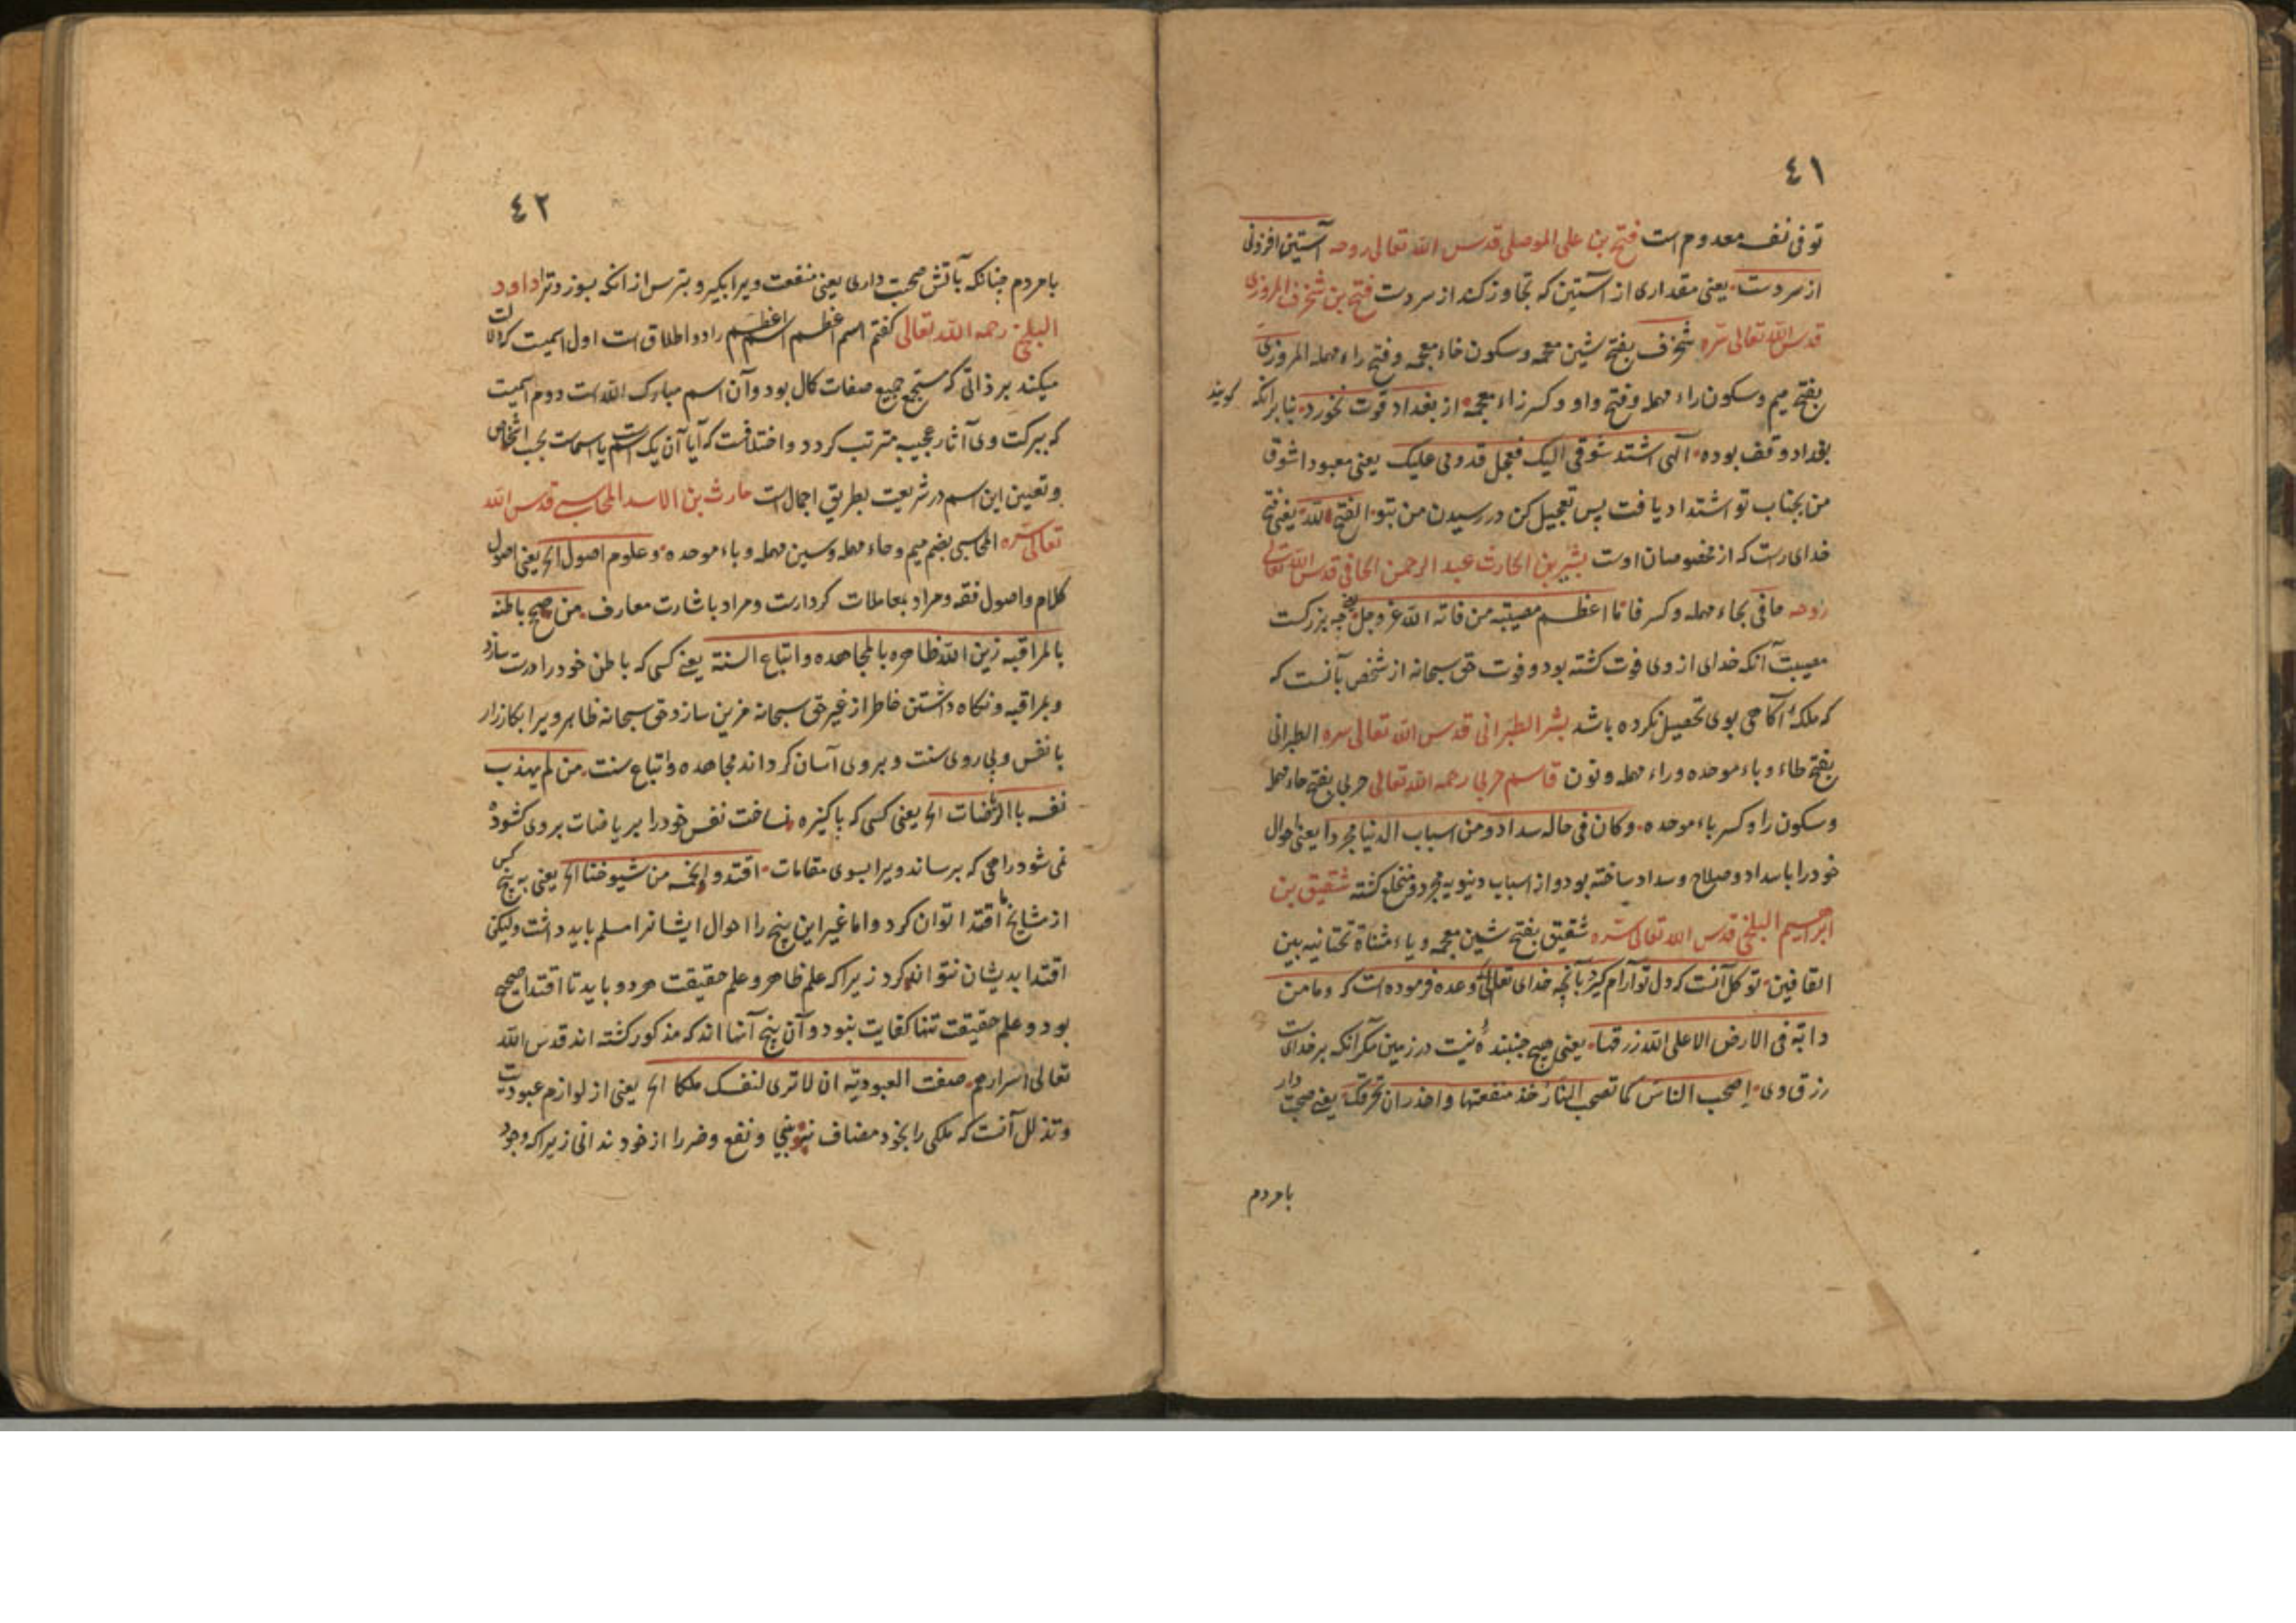 ٤١
توفی نفسه معدوم است فتح بن علی الموصلی قدس الله تعالی روحه آستین افزونی
از سر دست یعنی مقداری از آستین که تجاوز کند از سر دست فتح بن شخرف المروزی
قدس الله تعالی سره شخرف بفتح شین معجمه وسکون خاء معجمه وفتح راء مهمله المروزی
بفتح میم وسکون راء مهمله وفتح واو وکسر زاء معجمه از بغداد قوت نخورد بنابر انکه کویند
بغداد وقف بوده آلهی اشتد شوقی الیک فعجل قدومی علیک یعنی معبودا شوق
من بجناب تو اشتداد یافت پس تعجیل کن در رسیدن من بتو الفتح لله یعنی فتح
خدای راست که از مخصوصان اوست بشر بن الحارث عبد الرحمن الحافی قدس الله تعالی
روحه حافی بحاء مهمله وکسر فا ما اعظم مصیبته من فاته الله عز وجل چه بزرکست
مصیبت آنکه خدای از وی فوت کشته بود وفوت حق سبحانه از شخص بآنست که
که ملکهٔ آکاهی بوی تحصیل نکرده باشد بشر الطبرانی قدس الله تعالی سره الطبرانی
بفتح طاء وباء موحده وراء مهمله ونون قاسم حربی رحمه الله تعالی حربی بفتح حاء مهمله
وسکون را وکسر باء موحده وکان فی حاله سداد ومن اسباب الدنیا مجردا یعنی احوال
خود را با سداد وصلاح وسداد ساخته بود واز اسباب دنیویه مجرد ومتخلع کشته شقیق بن
ابراهیم البلخی قدس الله تعالی سره شقیق بفتح شین معجمه ویاء مثناة تحتانیه بین
القافین توکل آنست که دل تو آرام کیرد بآنچه خدای تعالی وعده فرموده است که وما من
دابة فی الارض الا علی الله رزقها یعنی هیچ جنبندهٔ نیست در زمین مکر آنکه بر خدای است
رزق وی اصحب الناس کما تصحب النار خذ منفعتها واحذر ان تحرقک یعنی صحبت دار
بامردم
٤٢
بامردم چنانکه بآتش صحبت داری یعنی منفعت ویرا بکیر و بترس از انکه بسوزد ترا داود
البلخی رحمه الله تعالی کفتم اسم اعظم اسم اعظم را دو اطلاق است اول اسمیست که دلالت
میکند بر ذاتی که مستجمع جمیع صفات کمال بود وآن اسم مبارک الله است دوم اسمیست
که ببرکت وی آثار عجیبه مترتب کردد واختلافست که آیا آن یک اسمست یا اسماست بحسب اشخاص
وتعیین این اسم در شریعت بطریق اجمال است حارث بن الاسد المحاسبی قدس الله
تعالی سره المحاسبی بضم میم وحاء مهمله وسین مهمله وباء موحده وعلوم اصول الخ یعنی اصول
کلام واصول فقه ومراد بمعاملات کردارست ومراد باشارت معارف من صحح باطنه
بالمراقبه زین الله ظاهره بالمجاهده واتباع السنة یعنی کسی که باطن خود را درست سازد
وبمراقبه ونکاه داشتن خاطر از غیر حق سبحانه مزین سازد حق سبحانه ظاهر ویرا بکارزار
با نفس وپی روی سنت و بروی آسان کرداند مجاهده واتباع سنت من لم یهذب
نفسه بالریاضات الخ یعنی کسی که پاکیزه نساخت نفس خود را بریاضات بروی کشوده
نمی شود راهی که برساند ویرا بسوی مقامات اقتدوا بخمسه من شیوخنا الخ یعنی به پنج کس
از مشایخ ما اقتدا توان کرد واما غیر این پنج را احوال ایشانرا مسلم باید داشت ولیکن
اقتدا بدیشان نتوان کرد زیرا که علم ظاهر وعلم حقیقت هر دو باید تا اقتدا صحیح
بود وعلم حقیقت تنها کفایت نبود وآن پنج آنها اند که مذکور کشته اند قدس الله
تعالی اسرارهم صفت العبودیه ان لا تری لنفسک ملکا الخ یعنی از لوازم عبودیت
وتذلل آنست که ملکی را بخود مضاف نبینی ونفع وضر را از خود ندانی زیرا که وجود